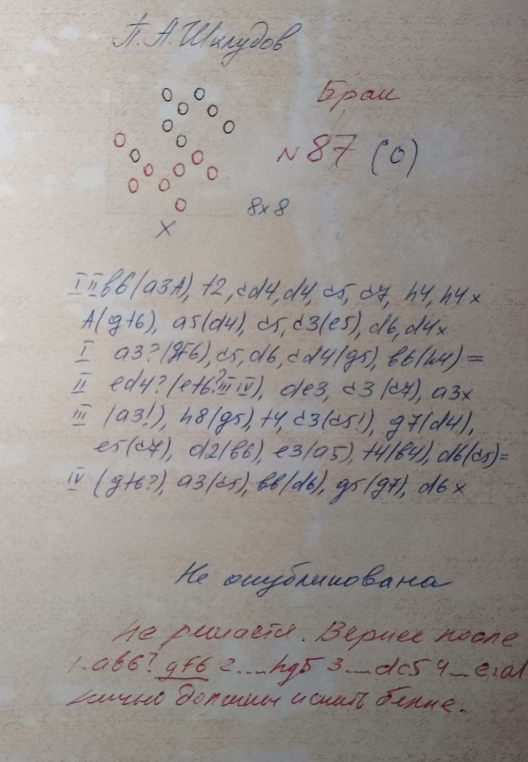 П. А. Шклудов
Брак
№ 87 (0)
8x8
X
I II в6 (a3A), f2, cd4, d4, c5, c7, h4, h4x
A (gf6), a5 (d4), c5, c3 (e5), d6, d4x
I a3? (gf6), c5, d6, cd4 (g5), вb (h4) =
II ed4? (ef6? III IV), de3, c3 (c7), a3x
III (a3!), h8 (g5), f4, c3 (c5!), g7 (d4),
e5 (c7), d2 (в6), e3 (a5), f4 (в4), d6 (c5) =
IV (gf6?), a3 (c5), в6 (d6), g5 (g7), d6 x
Не опубликована
Не решается. Вернее после
1. ab6? gf6 2 ... hg5 3 ... dc5 4 ...
должны искать белые.